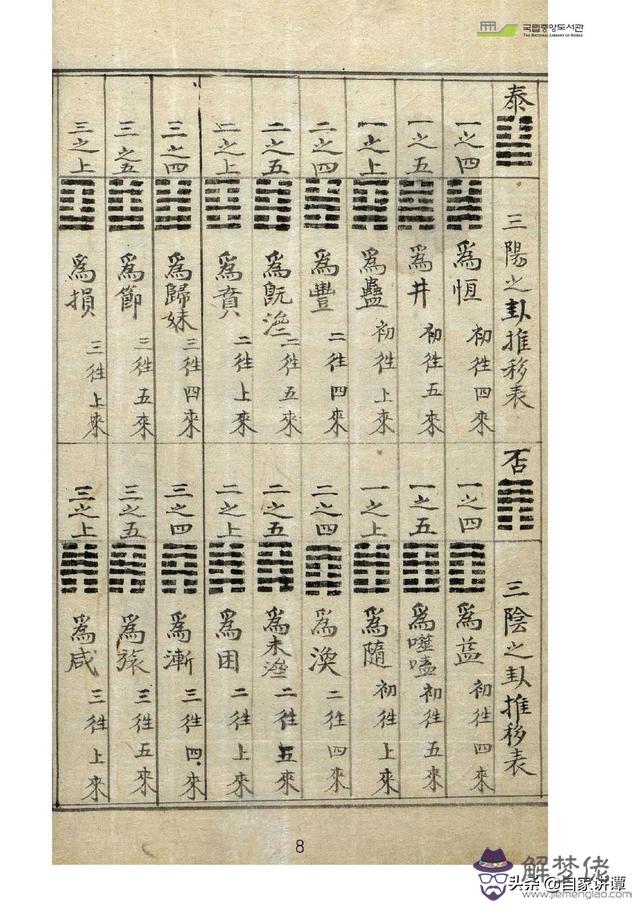 국립중앙도서관
THE NATIONAL LIBRARY OF KOREA
泰
三陽之卦推移表
一之四
爲恆
初徃四來
一之五
爲井
初徃五來
一之上
爲蠱
初徃上來
二之四
爲豐
二徃四來
二之五
爲旣濟
二徃五來
二之上
爲賁
二徃上來
三之四
爲歸妹
三徃四來
三之五
爲節
三徃五來
三之上
爲損
三徃上來
否
三陰之卦推移表
一之四
爲益
初徃四來
一之五
爲噬嗑
初徃五來
一之上
爲隨
初徃上來
二之四
爲渙
二徃四來
二之五
爲未濟
二徃五來
二之上
爲困
二徃上來
三之四
爲漸
三徃四來
三之五
爲旅
三徃五來
三之上
爲咸
三徃上來
8
解梦佬
头条 @自家讲谭
www.jiemenglao.com